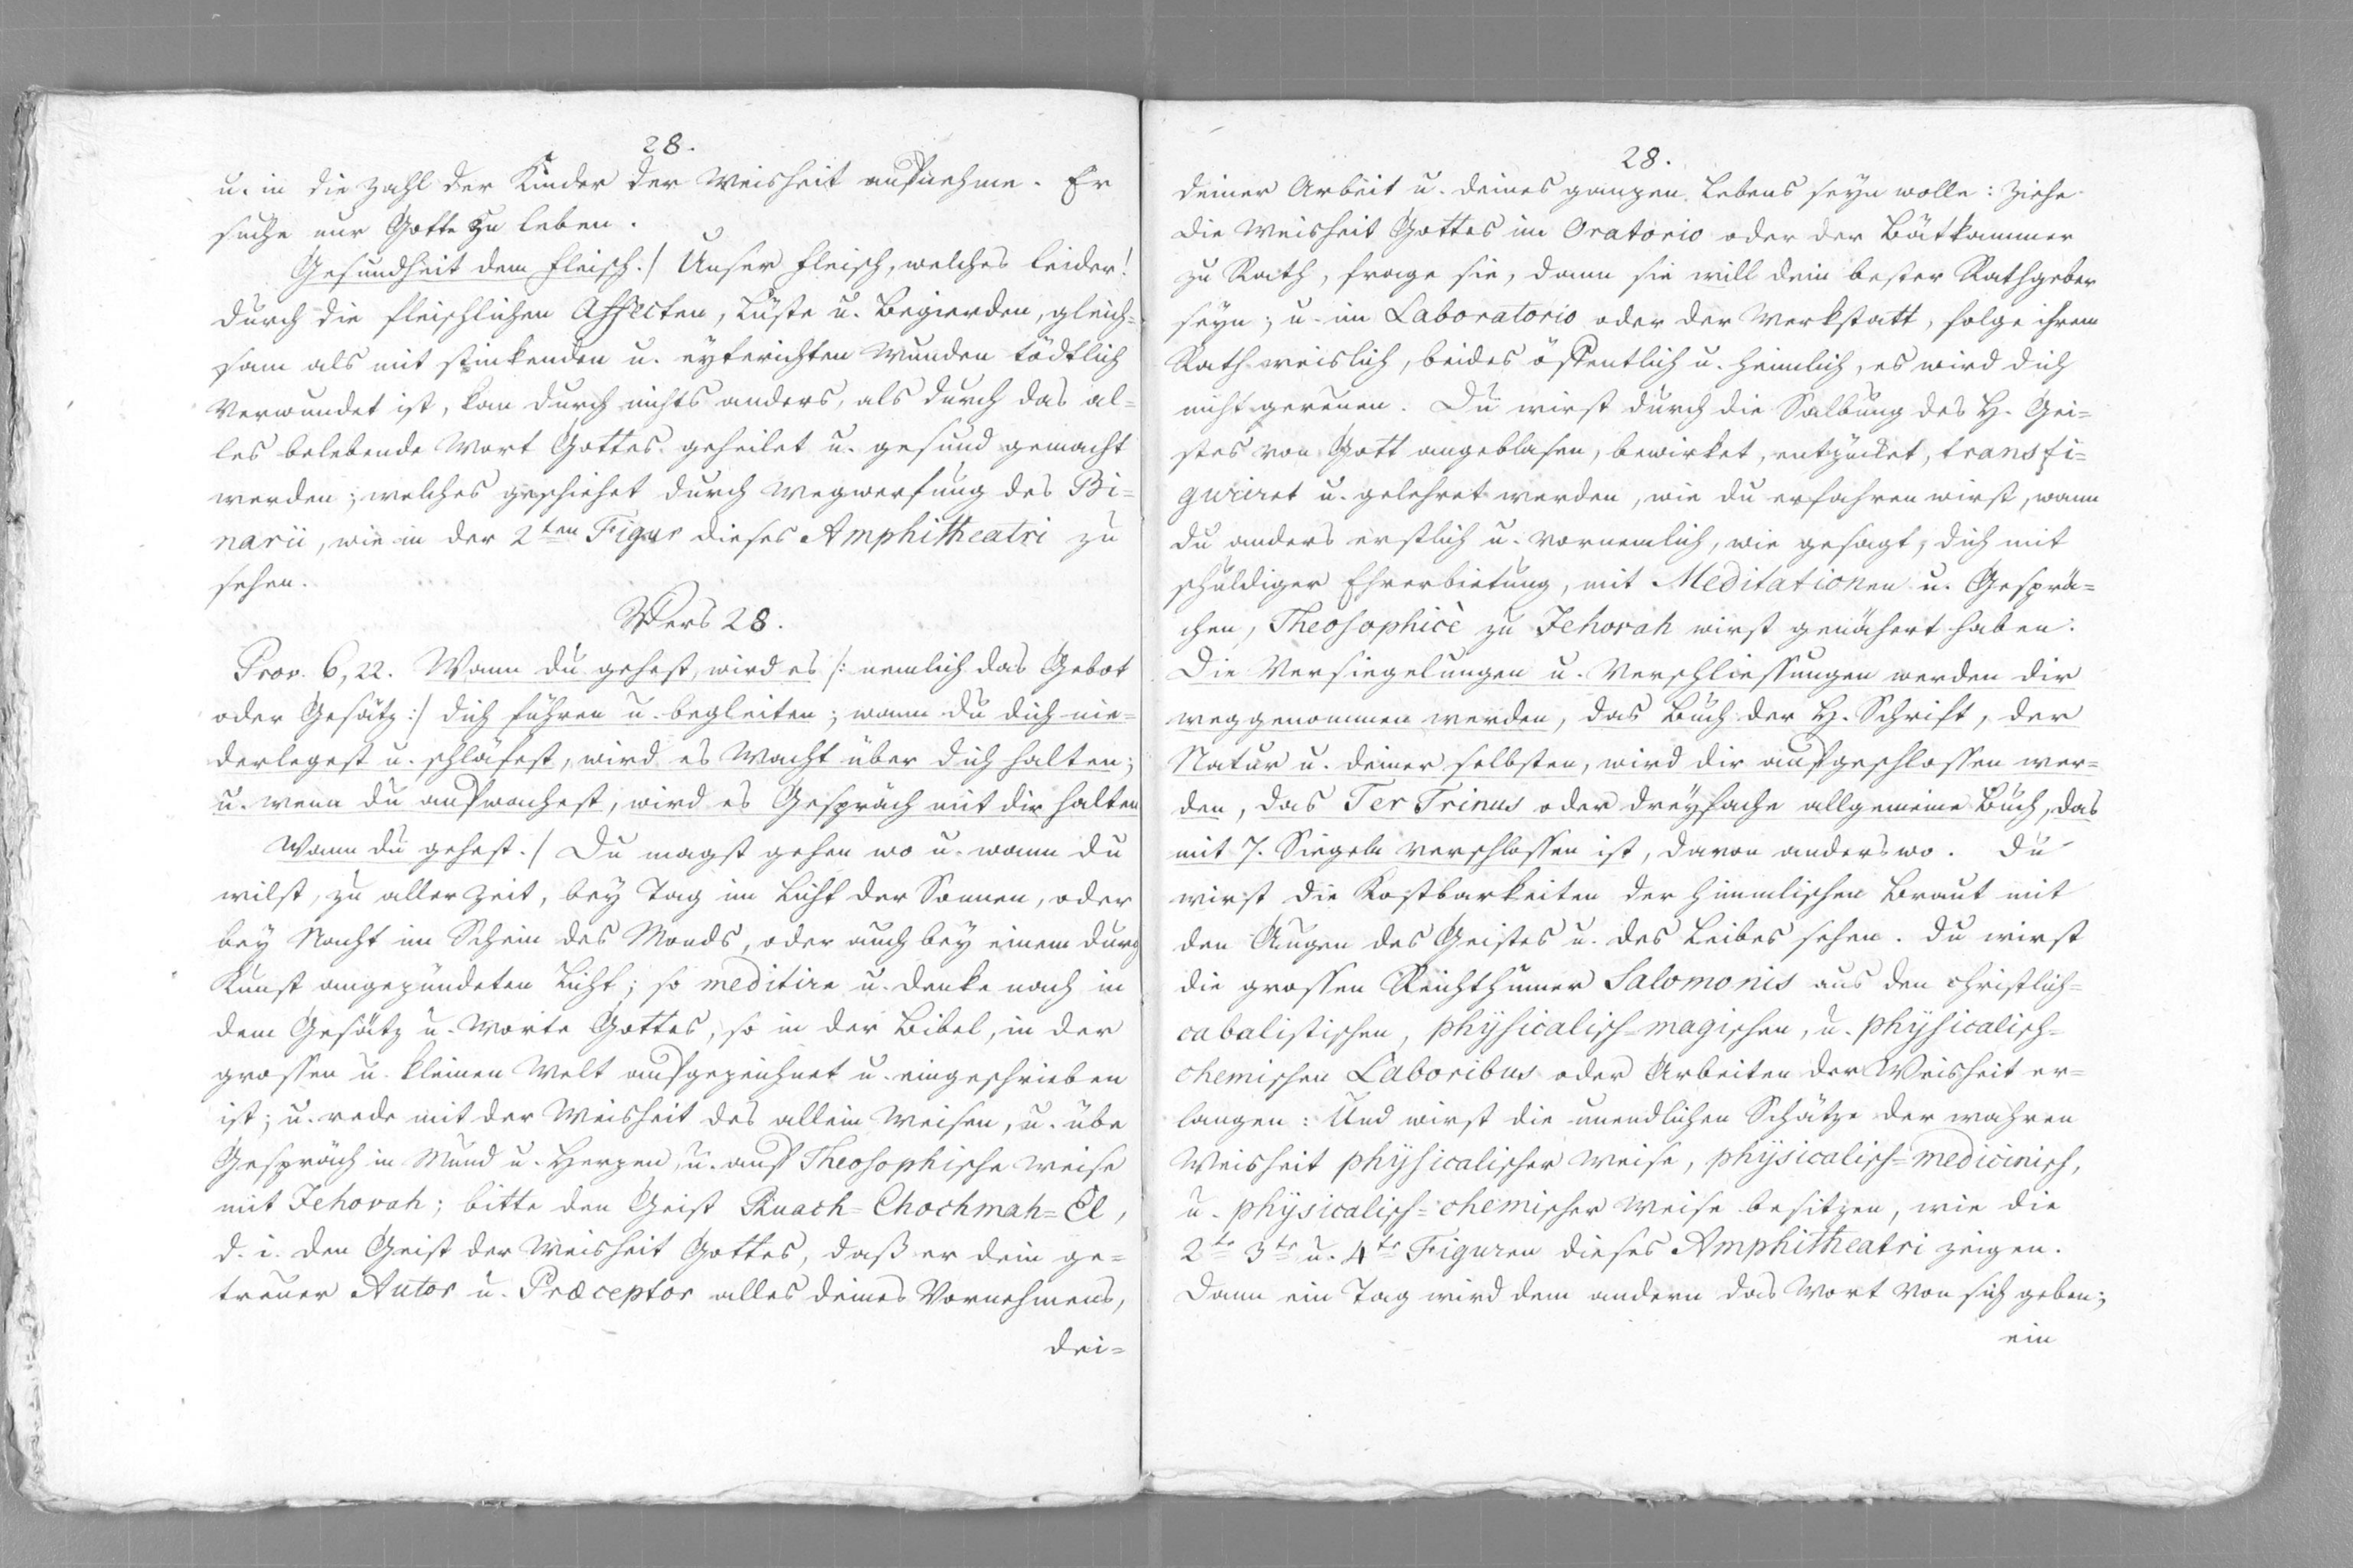 28.
u. in die Zahl der Kinder der Weisheit aufnehme. Er
suche nur Gotte zu leben.
Gesundheit dem Fleisch./ Unser Fleisch, welches leider!
durch die fleischlichen Affecten, Lüste u. Begierden, gleich=
sam als mit stinkenden u. eyterichten Wunden tödtlich
verwundet ist, kan durch nichts anders, als durch das al=
les belebende Wort Gottes geheilet u. gesund gemacht
werden; welches geschiehet durch Wegwerfung des Bi=
narii, wie in der 2ten Figur dieses Amphitheatri zu
sehen.
Vers 28.
Prov. 6, 22. Wann du gehest, wird es /: nemlich das Gebot
oder Gesätz :/ dich führen u. begleiten; wann du dich nie=
derlegest u. schläfest, wird es Wacht über dich halten;
u. wenn du aufwachest, wird es Gespräch mit dir halten
Wann du gehest./ Du magst gehen wo u. wann du
wilst, zu aller Zeit, bey Tag im Licht der Sonnen, oder
bey Nacht im Schein des Monds, oder auch bey einem durch
Kunst angezündeten Licht; so meditire u. denke nach in
dem Gesätz u. Worte Gottes, so in der Bibel, in der
grossen u. kleinen Welt aufgezeichnet u. eingeschrieben
ist; u. rede mit der Weisheit des allein Weisen, u. übe
Gespräch in Mund u. Herzen, u. auf Theosophische Weise
mit Jehovah; bitte den Geist Ruach=Chochmah=El,
d. i. den Geist der Weisheit Gottes, daß er dein ge=
treuer Autor u. Præceptor alles deines Vornehmens,
dei=
28.
deiner Arbeit u. deines ganzen Lebens seyn wolle: Ziehe
die Weisheit Gottes im Oratorio oder der Bätkammer
zu Rath, frage sie, dann sie will dein bester Rathgeber
seyn; u. im Laboratorio oder der Werkstatt, folge ihrem
Rath weislich, beides öffentlich u. heimlich, es wird dich
nicht gereuen. Du wirst durch die Salbung des H. Gei=
stes von Gott angeblasen, bewirket, entzücket, transfi=
guriret u. gelehret werden, wie du erfahren wirst, wann
du anders erstlich u. vornemlich, wie gesagt, dich mit
schuldiger Ehrerbietung, mit Meditationen u. Gesprä=
chen, Theosophicè zu Jehovah wirst genähert haben:
Die Versiegelungen u. Verschliessungen werden dir
weggenommen werden, das Buch der H. Schrift, der
Natur u. deiner selbsten, wird dir aufgeschlossen wer=
den, das Ter Trinus oder dreyfache allgemeine Buch, das
mit 7. Siegeln verschlossen ist, davon anderswo. Du
wirst die Kostbarkeiten der himmlischen Braut mit
den Augen des Geistes u. des Leibes sehen. Du wirst
die grossen Reichthümer Salomonis aus den christlich=
cabalistischen, physicalisch=magischen, u. physicalisch=
chemischen Laboribus oder Arbeiten der Weisheit er=
langen: Und wirst die unendlichen Schätze der wahren
Weisheit physicalischer Weise, physicalisch=medicinisch,
u. physicalisch=chemischer Weise besitzen, wie die
2te 3te u. 4te Figuren dieses Amphitheatri zeigen.
Dann ein Tag wird dem andern das Wort von sich geben;
ein